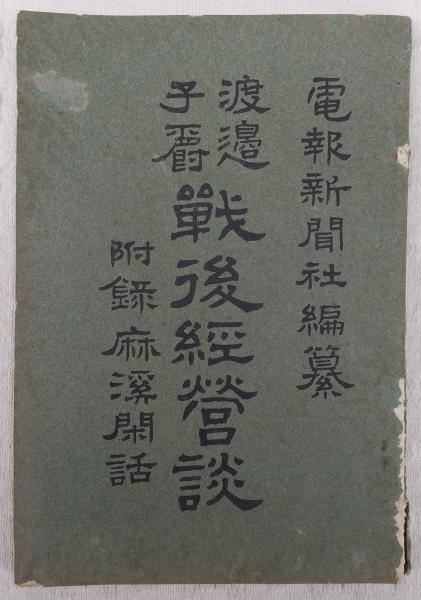 電報新聞社編纂
渡邉子爵戰後經營談
附錄麻溪閑話